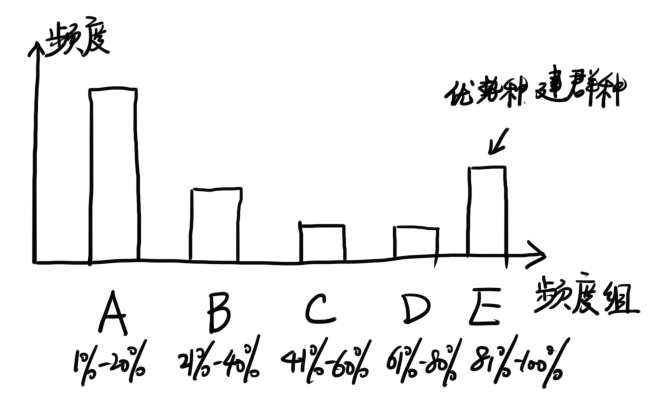 频度
优势种 建群种
A B C D E 频度组
1%-20% 21%-40% 41%-60% 61%-80% 81%-100%